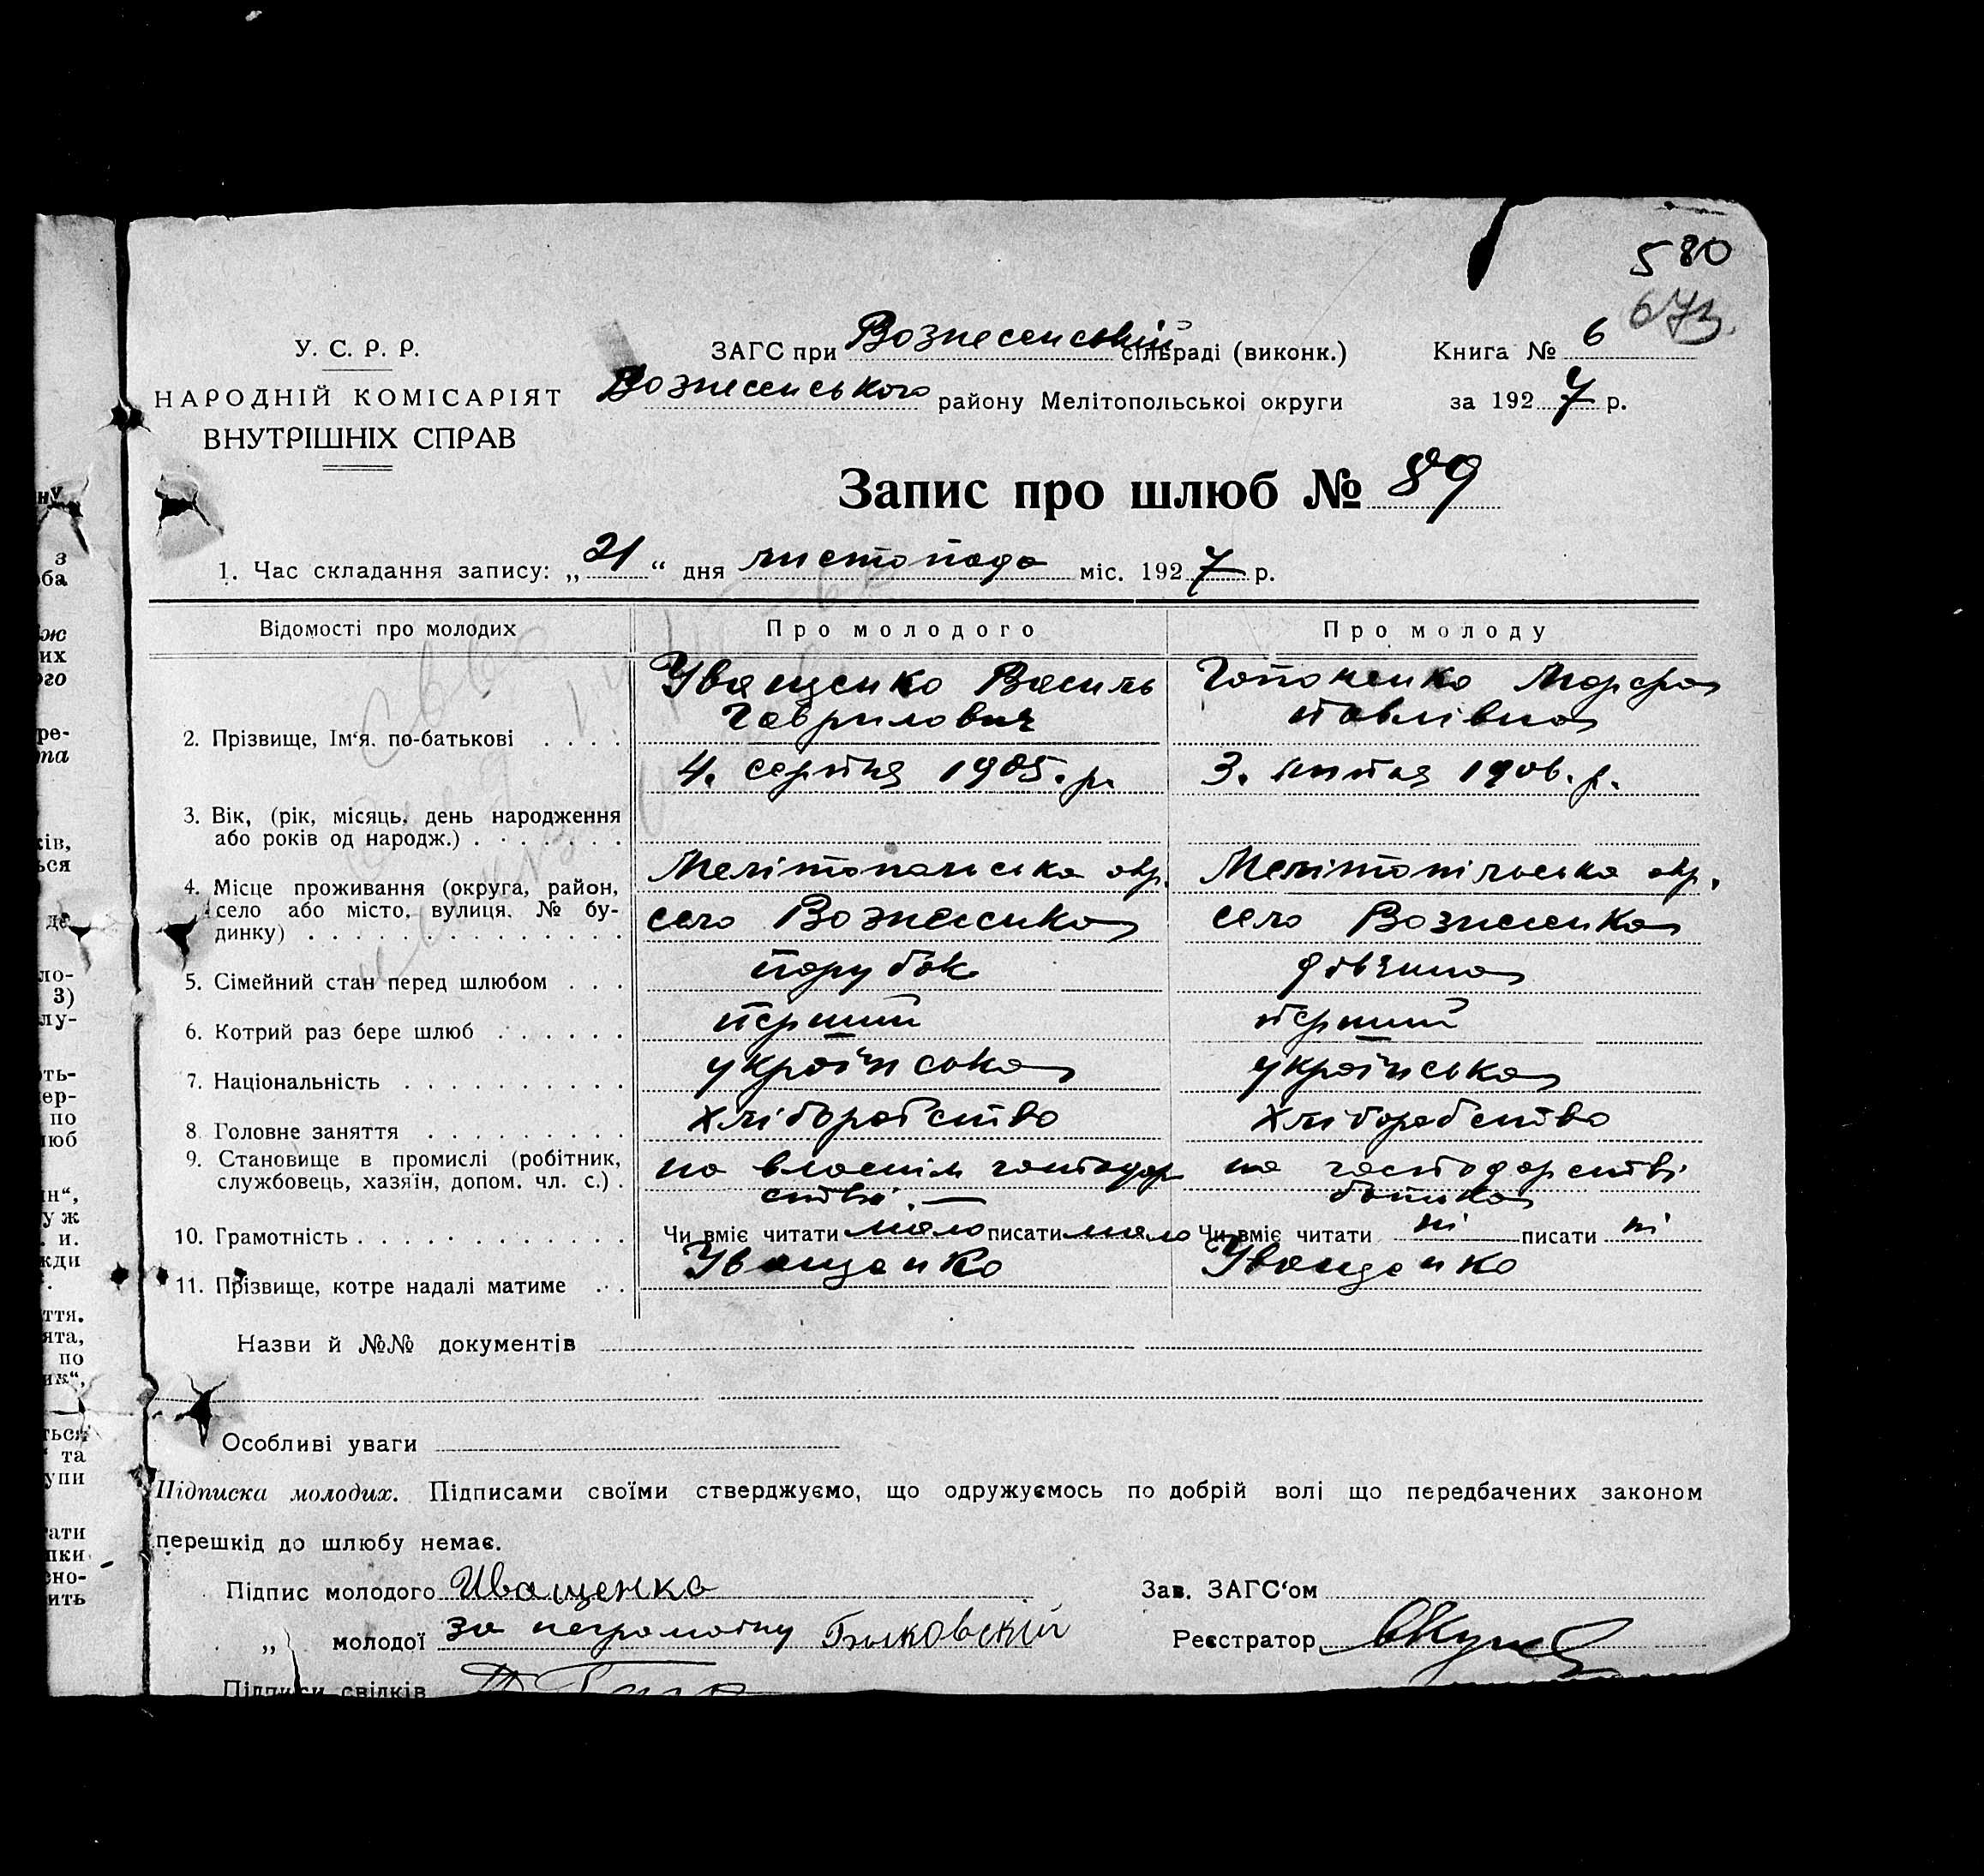 580
673.
У. С. Р. Р.
НАРОДНІЙ КОМІСАРІЯТ
ВНУТРІШНІХ СПРАВ
ЗАГС при Вознесенській сільраді (виконк.)
Вознесенського району Мелітопольської округи
Книга № 6
за 1927 р.
Запис про шлюб № 89
1. Час складання запису: „21“ дня листопада міс. 1927 р.
Відомості про молодих
Про молодого
Про молоду
2. Прізвище, Ім'я, по-батькові . . . .
Іващенко Василь
Гаврилович
Гапоненко Марфа
Павлівна
3. Вік, (рік, місяць, день народження
або років од народж.) . . . . . . .
4. серпня 1905. р.
3. липня 1906. р.
4. Місце проживання (округа, район,
село або місто, вулиця, № бу-
динку) . . . . . . . . . . . . . .
Мелітопольська окр.
село Вознесенка
Мелітопільська окр.
село Вознесенка
5. Сімейний стан перед шлюбом . . .
парубок
дівчина
6. Котрий раз бере шлюб . . . . . .
перший
перший
7. Національність . . . . . . . . . .
українська
українська
8. Головне заняття . . . . . . . . .
хліборобство
хліборобство
9. Становище в промислі (робітник,
службовець, хазяїн, допом. чл. с.) .
на власнім господар
стві
на господарстві
батька
10. Грамотність . . . . . . . . . . . .
Чи вміє читати мало писати мало
Чи вміє читати ні писати ні
11. Прізвище, котре надалі матиме . .
Іващенко
Іващенко
Назви й №№ документів
Особливі уваги
Підписка молодих. Підписами своїми стверджуємо, що одружуємось по добрій волі що передбачених законом
перешкід до шлюбу немає.
Підпис молодого Иващенко
Зав. ЗАГС'ом
„ молодої за неграмотну Быковский
Реєстратор
Підписи свідків